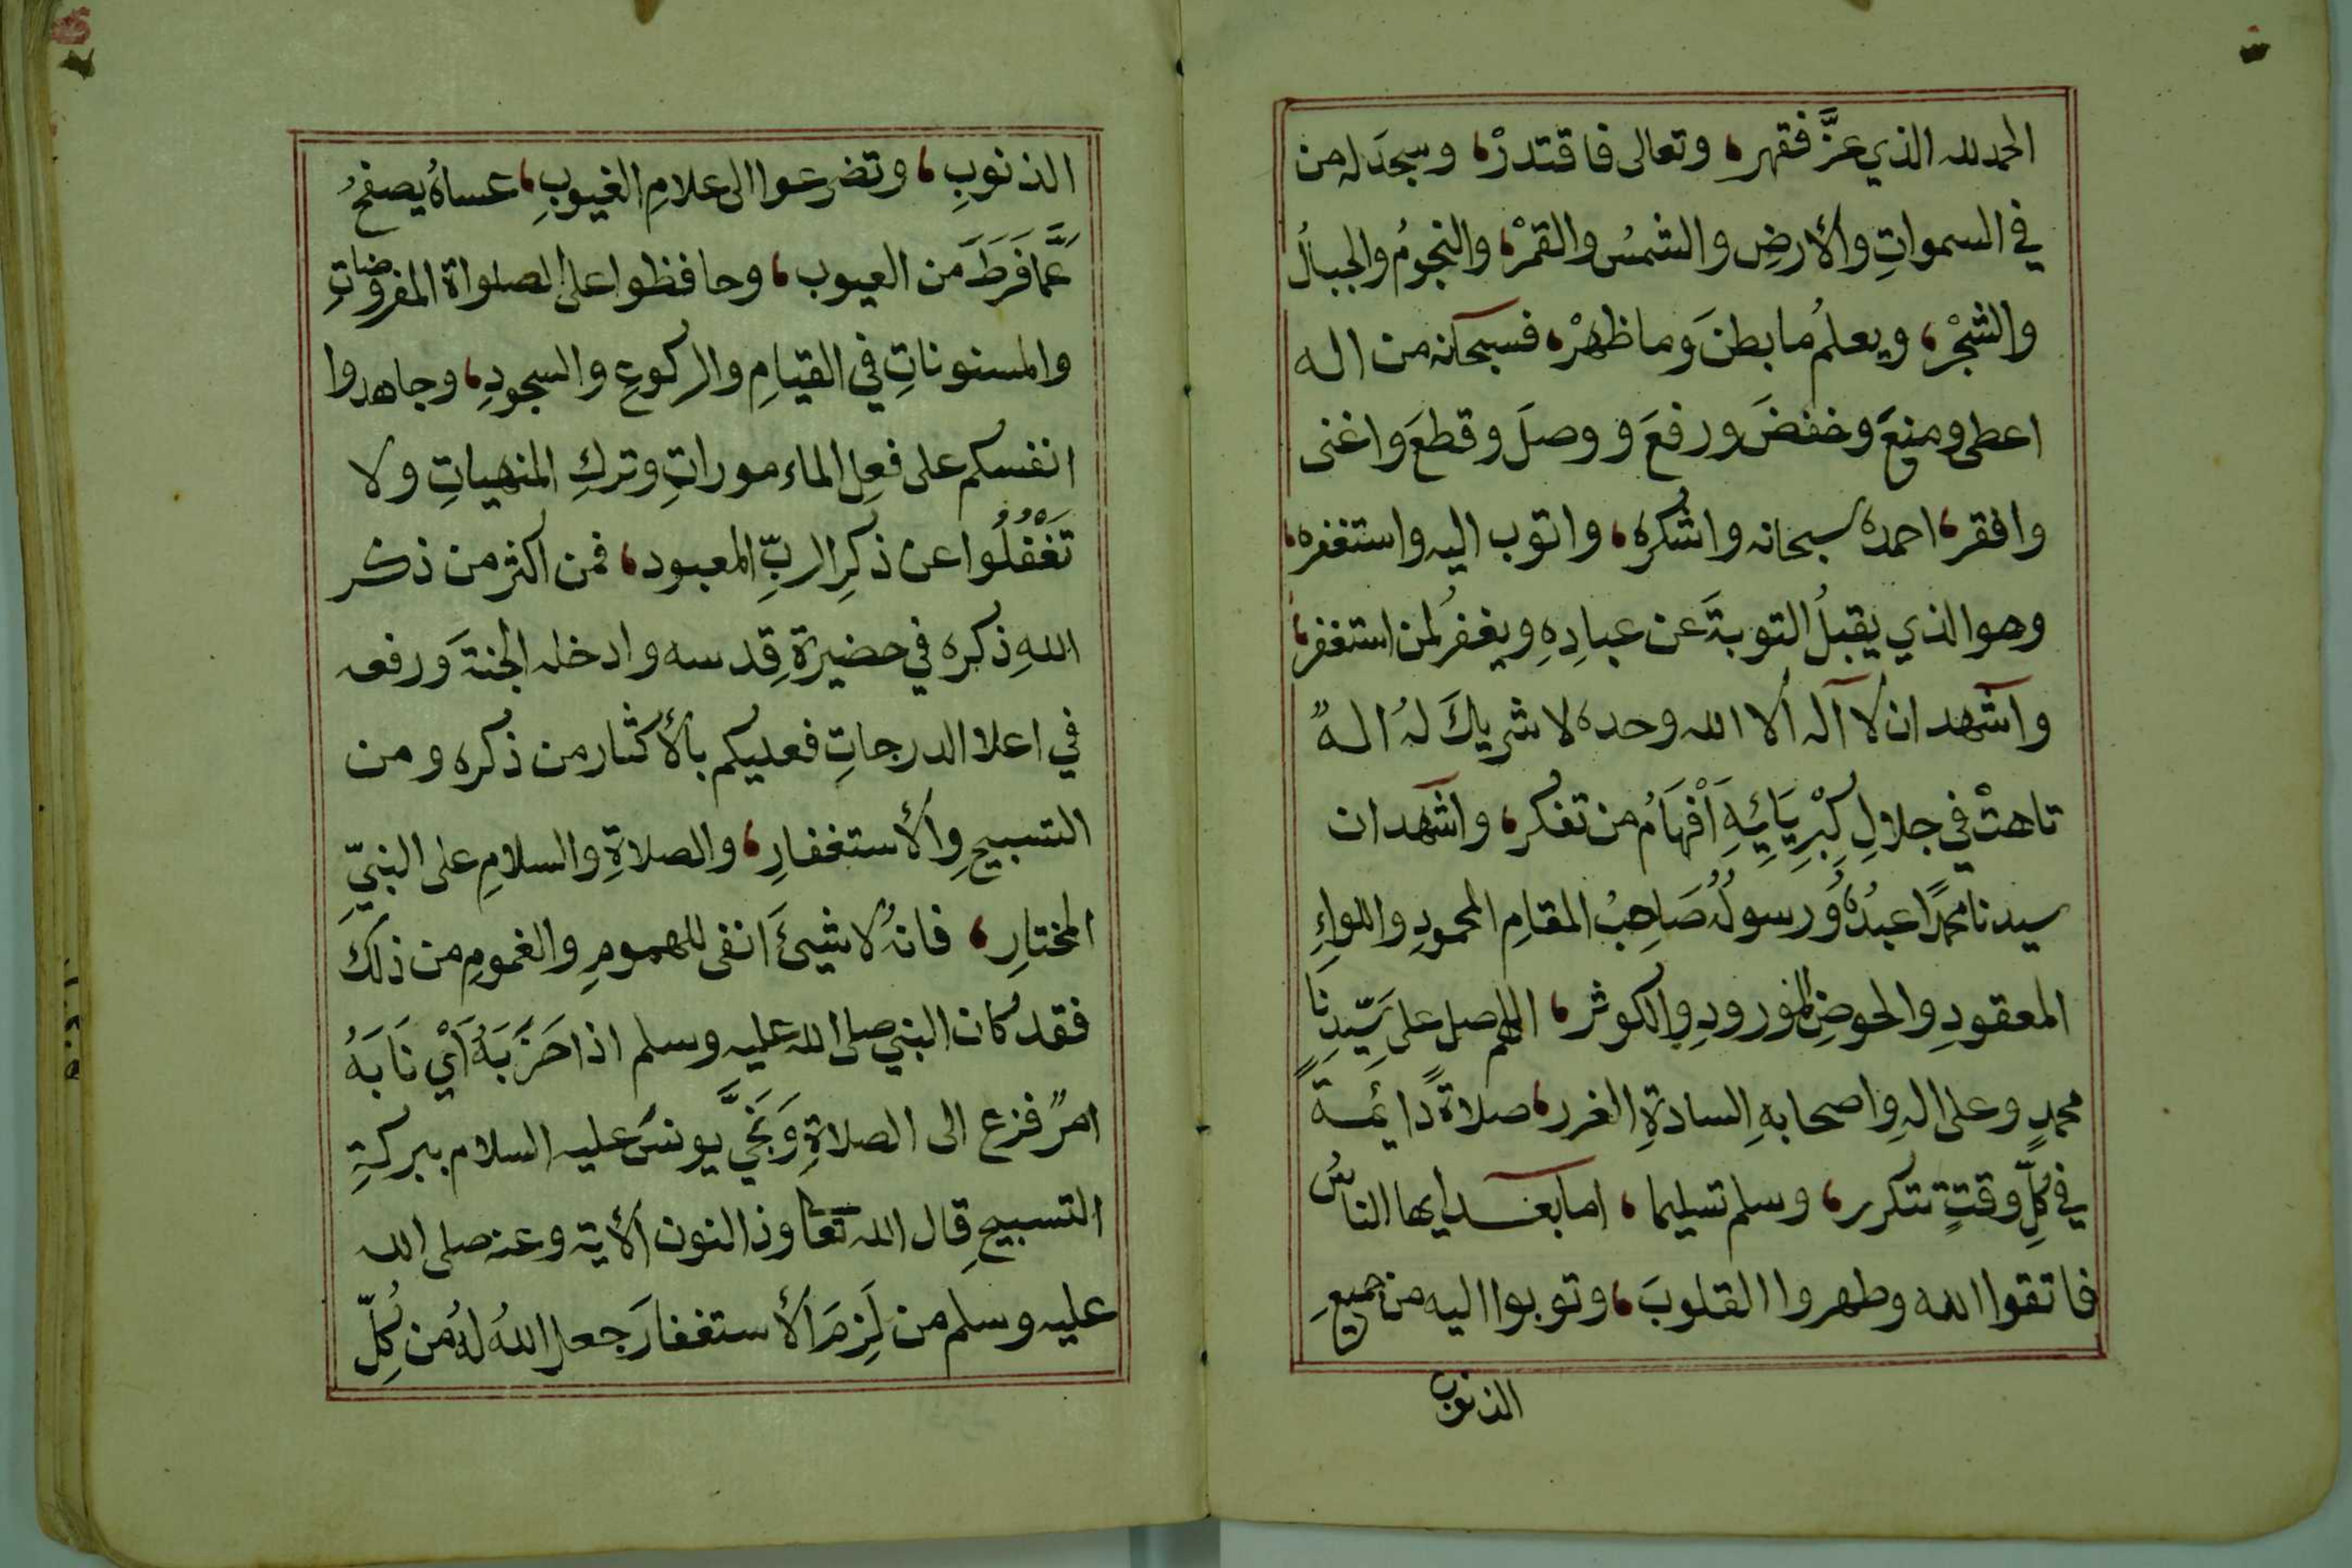 الحمد لله الذي عَزَّ فقهر، وتعالى فاقتدرْ، وسجدَ له من
في السمواتِ والأرضِ والشمسُ والقمرْ، والنجومُ والجبالُ
والشجْر، ويعلمُ ما بطنَ وما ظهرْ، فسبحانه من اله
اعطى ومنعَ وخفضَ ورفعَ ووصلَ وقطعَ واغنى
وافقر، احمده سبحانه واشكره، واتوب اليه واستغفره،
وهو الذي يقبلُ التوبةَ عن عبادِهِ ويغفرُ لمن استغفر،
واشهد ان لا آله ألا الله وحده لا شريكَ لهُ الهٌ
تاهتْ في جلالِ كِبْرِيَائِهِ اَفْهَامُ من تفكر، واشهد ان
سيدنا محمدًا عبدُهُ ورسولُهُ صَاحِبُ المقامِ المحمودِ واللواءِ
المعقودِ والحوضِ المورودِ والكوثر، اللهم صل على سَيِّدِنَا
محمدٍ وعلى الهِ واصحابهِ السادةِ الغرر، صلاةً دائمةً
في كُلِّ وقتٍ تتكرر، وسلم تسليما، اما بعد ايها الناسُ
فاتقوا الله وطهروا القلوبَ، وتوبوا اليه من جميعِ
الذنوب
الذنوبِ، وتضرعوا الى علامِ الغيوبِ، عساهُ يصفحُ
عَمَّا فَرَطَ من العيوب، وحافظوا على الصلواة المفروضاتِ
والمسنوناتِ في القيامِ والركوعِ والسجودِ، وجاهدوا
انفسكم على فعلِ الماءموراتِ وتركِ المنهياتِ ولا
تَغْفُلُوا عن ذكرِ الربِّ المعبود، فمن اكثر من ذكر
اللهِ ذكره في حضيرةِ قِدسه وادخله الجنةَ ورفعه
في اعلا الدرجاتِ فعليكم بالأكثار من ذكره ومن
التسبيحِ والأستغفارِ، والصلاةِ والسلامِ على النبيِّ
المختارِ، فانهُ لا شيئَ انفى للهمومِ والغمومِ من ذلك
فقد كان النبي صلى الله عليه وسلم اذا حَزَبَهُ اَيْ نَابَهُ
امرٌ فزع الى الصلاةِ وَنَجَّى يونسَ عليه السلام ببركةِ
التسبيحِ قال الله تعا وذا النون ألأية وعنه صلى الله
عليه وسلم من لَزِمَ الأستغفارَ جعل اللهُ لهُ من كُلِّ